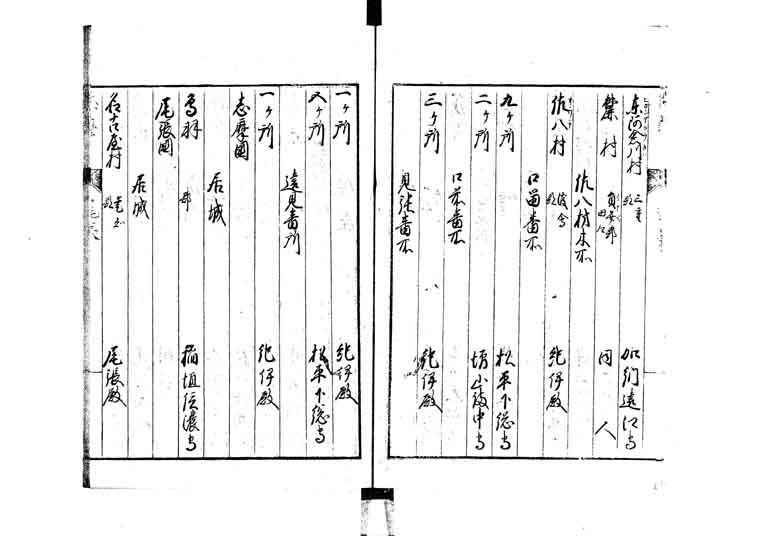 東阿倉川村 三重郡 加納遠江守
黛村 員弁郡 同人
佐八村木戸
佐八村 度会郡 紀伊殿
口留番所
九ヶ所 松平下総守
二ヶ所 増山備中守
口前番所
三ヶ所 紀伊殿
見張番所
一ヶ所 紀伊殿
五ヶ所 松平下総守
遠見番所
一ヶ所 紀伊殿
志摩国
居城
鳥羽 稲垣信濃守
尾張国
居城
名古屋村 尾張殿